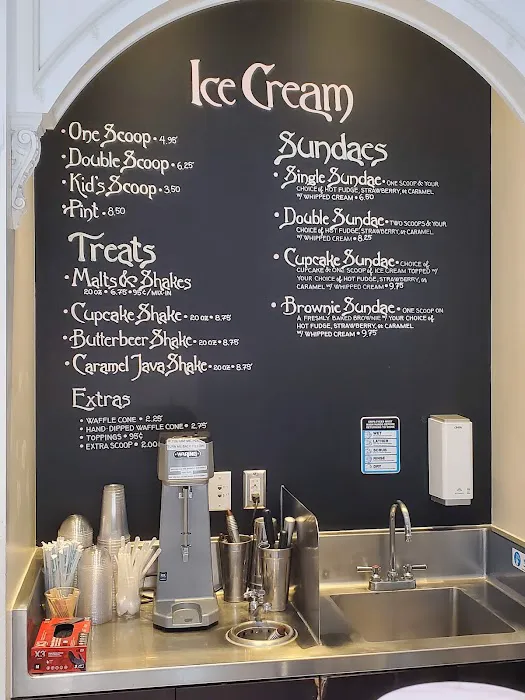 Ice Cream
• One Scoop • 4.95
• Double Scoop • 6.25
• Kid's Scoop • 3.50
• Pint • 8.50
Treats
• Malts & Shakes
20 oz • 6.75 • 95¢/mix-in
• Cupcake Shake • 20 oz • 8.75
• Butterbeer Shake • 20 oz • 8.75
• Caramel Java Shake • 20 oz • 8.75
Extras
• Waffle Cone • 2.25
• Hand-Dipped Waffle Cone • 2.75
• Toppings • 95¢
• Extra Scoop • 2.00
Sundaes
• Single Sundae • one scoop & your
choice of hot fudge, strawberry, or caramel
w/ whipped cream • 6.50
• Double Sundae • two scoops & your
choice of hot fudge, strawberry, or caramel
w/ whipped cream • 8.25
• Cupcake Sundae • choice of
cupcake & one scoop of ice cream topped w/
your choice of hot fudge, strawberry, or
caramel w/ whipped cream • 9.75
• Brownie Sundae • one scoop on
a freshly baked brownie w/ your choice of
hot fudge, strawberry, or caramel
w/ whipped cream • 9.75
WET
LATHER
SCRUB
RINSE
DRY
X3